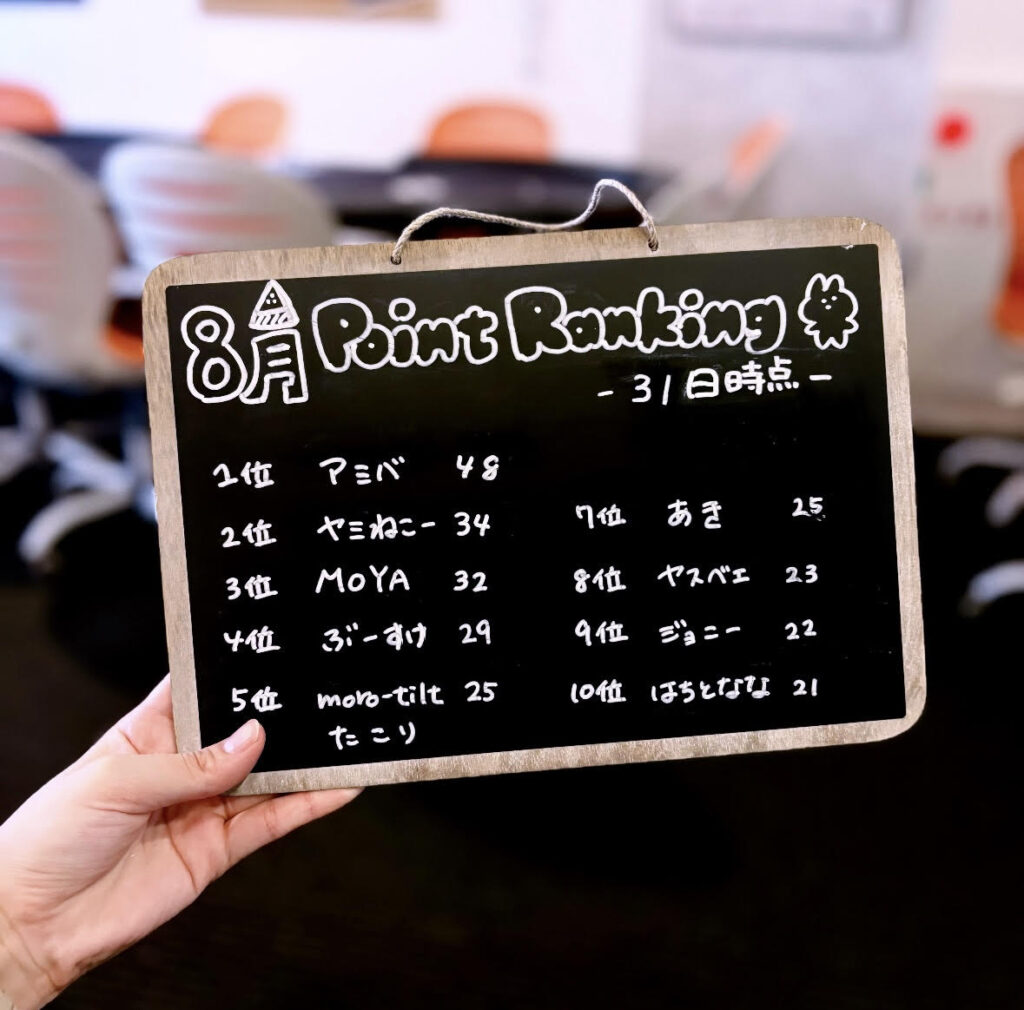 8月 Point Ranking
- 31日時点 -
1位 アミバ 48
2位 ヤミねこー 34
3位 MOYA 32
4位 ぶーすけ 29
5位 moro-tilt 25
たこり
7位 あき 25
8位 ヤスベェ 23
9位 ジョニー 22
10位 はちとなな 21